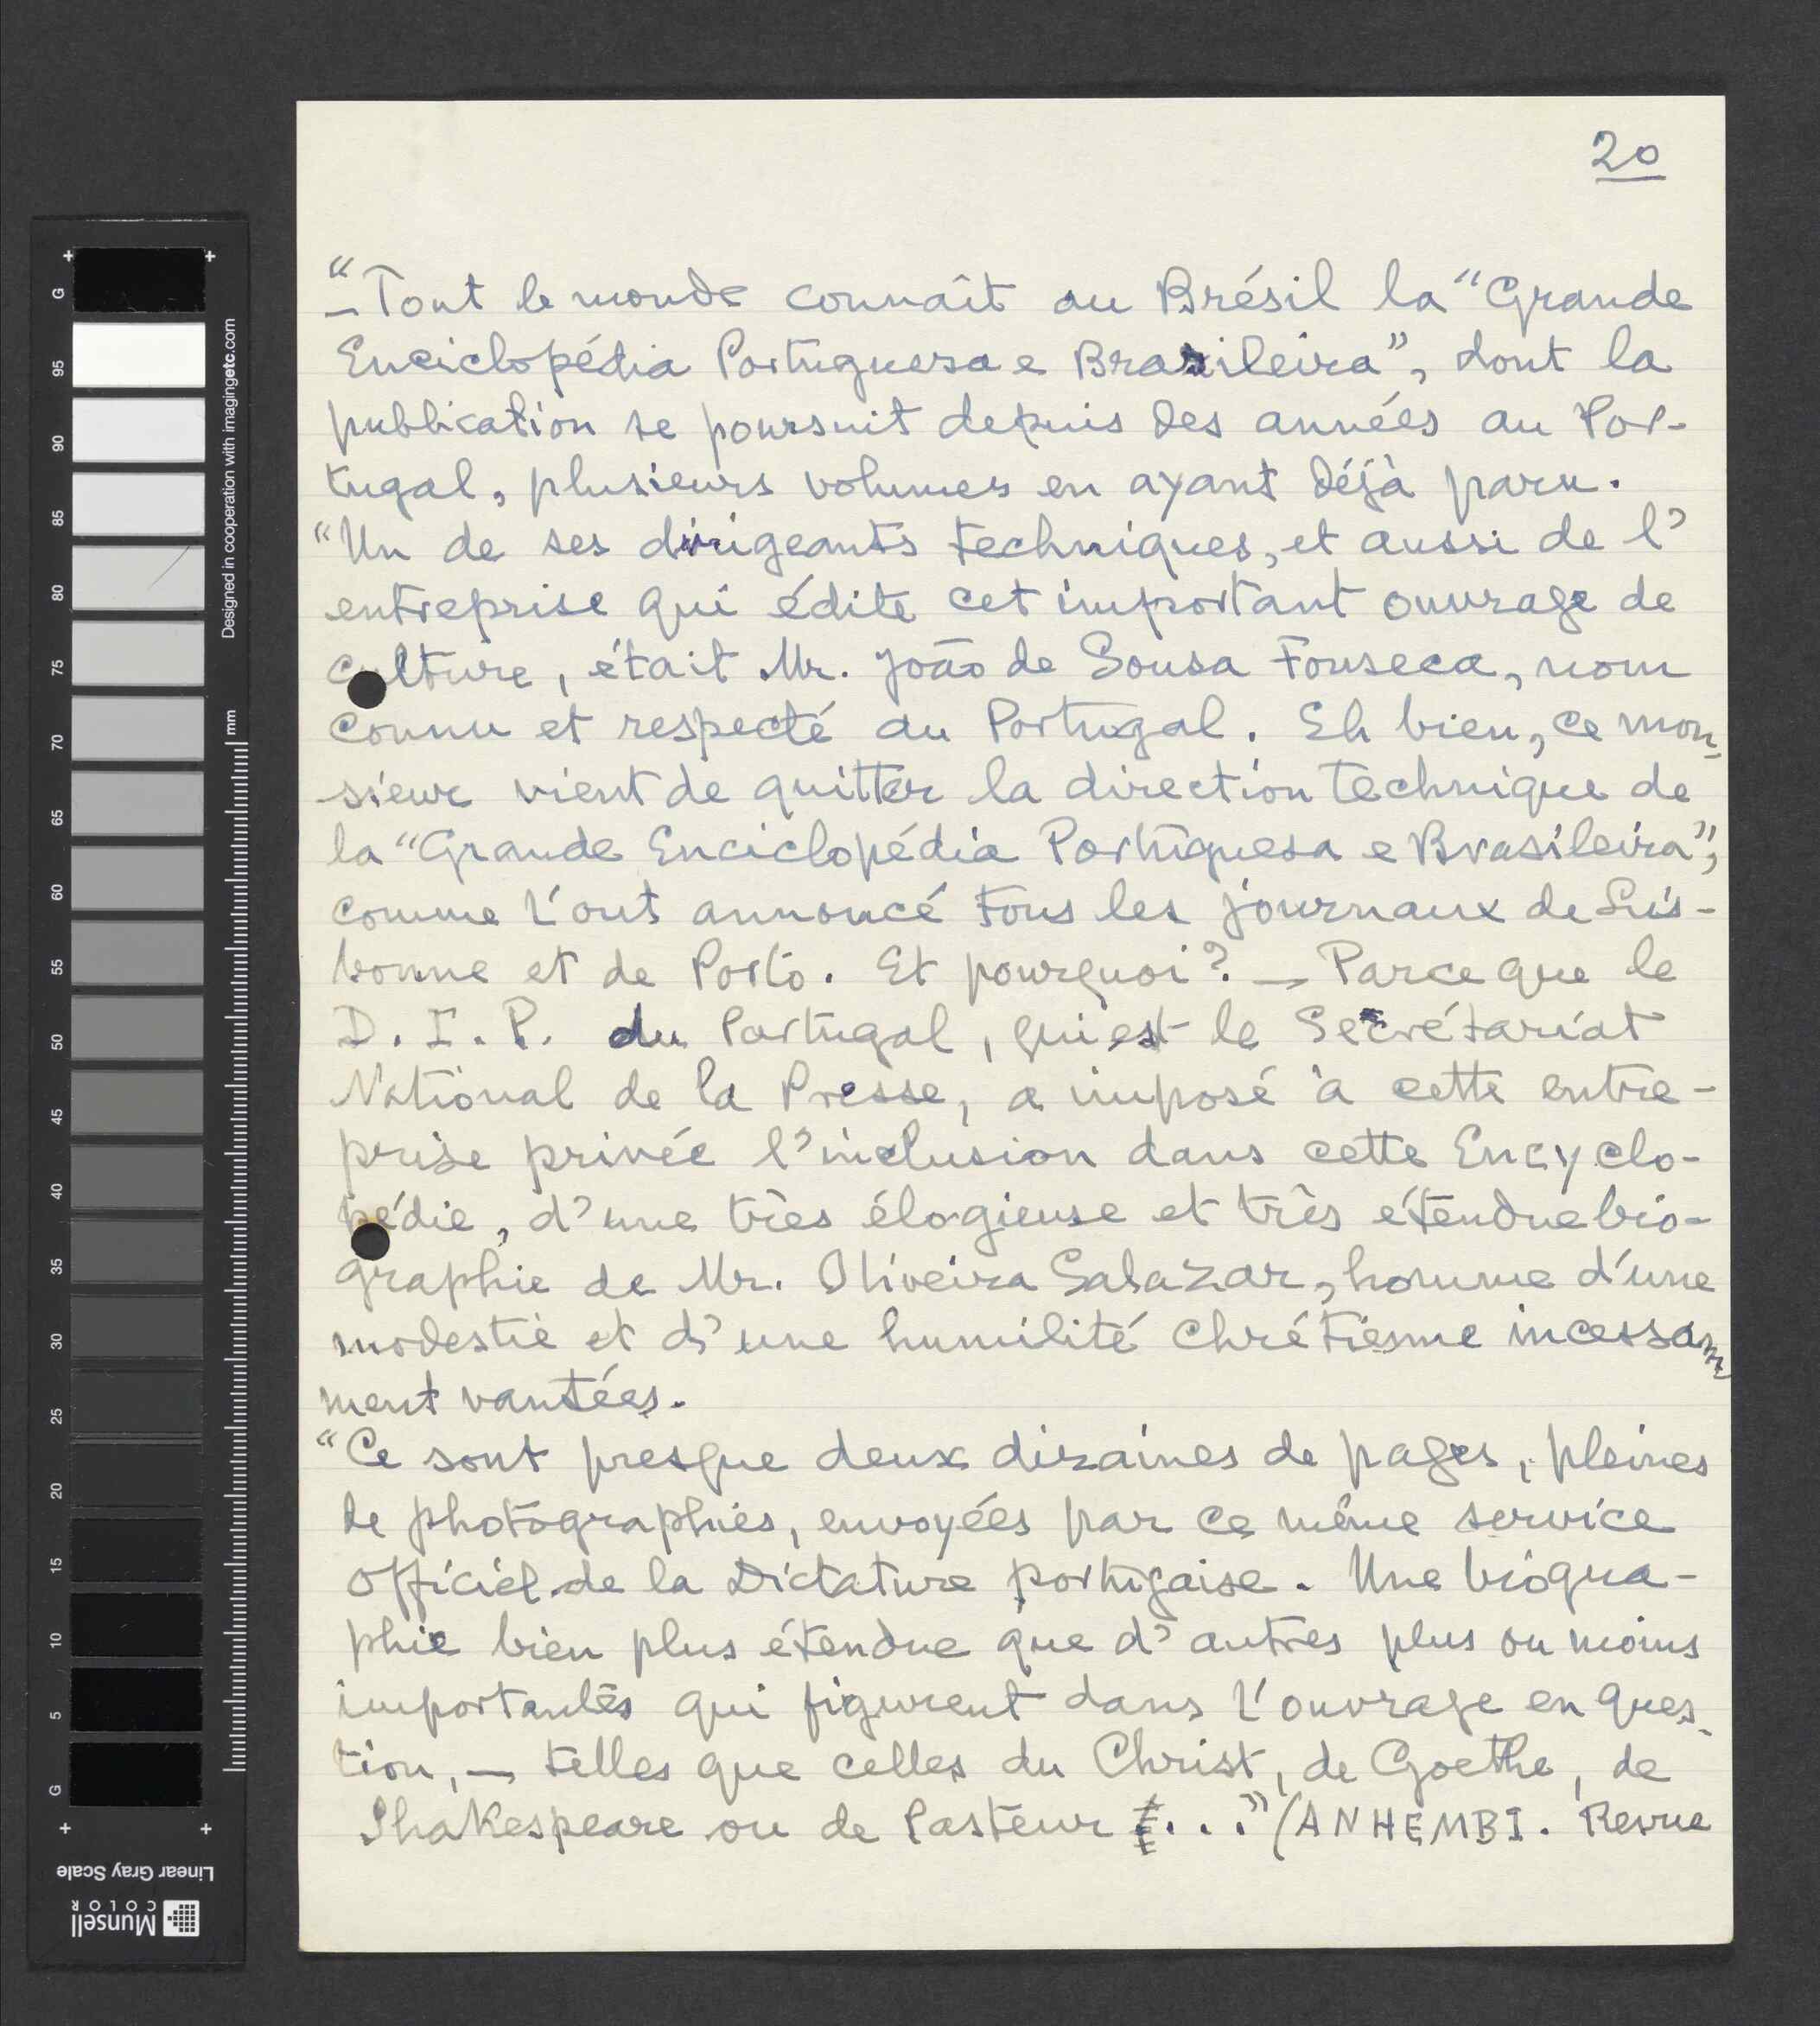 20
“— Tout le monde connaît au Brésil la “Grande
Enciclopédia Portuguesa e Brasileira”, dont la
publication se poursuit depuis des années au Por-
tugal, plusieurs volumes en ayant déjà paru.
“Un de ses dirigeants techniques, et aussi de l’
entreprise qui édite cet important ouvrage de
culture, était Mr. João de Sousa Fonseca, nom
connu et respecté au Portugal. Eh bien, ce mon-
sieur vient de quitter la direction technique de
la “Grande Enciclopédia Portuguesa e Brasileira”,
comme l’ont annoncé tous les journaux de Lis-
bonne et de Porto. Et pourquoi? — Parce que le
D. I. P. du Portugal, qui est le Secrétariat
National de la Presse, a imposé à cette entre-
prise privée l’inclusion dans cette Encyclo-
pédie, d’une très élogieuse et très étendue bio-
graphie de Mr. Oliveira Salazar, homme d’une
modestie et d’une humilité chrétienne incessam-
ment vantées.
“Ce sont presque deux dizaines de pages, pleines
de photographies, envoyées par ce même service
officiel de la Dictature portugaise. Une biogra-
phie bien plus étendue que d’autres plus ou moins
importantes qui figurent dans l’ouvrage en ques-
tion, — telles que celles du Christ, de Goethe, de
Shakespeare ou de Pasteur . . .” (ANHEMBI. Revue
Designed in cooperation with imagingetc.com
mm
G
95
90
85
80
75
70
65
60
55
50
45
40
35
30
25
20
15
10
5
G
Linear Gray Scale
Munsell
COLOR